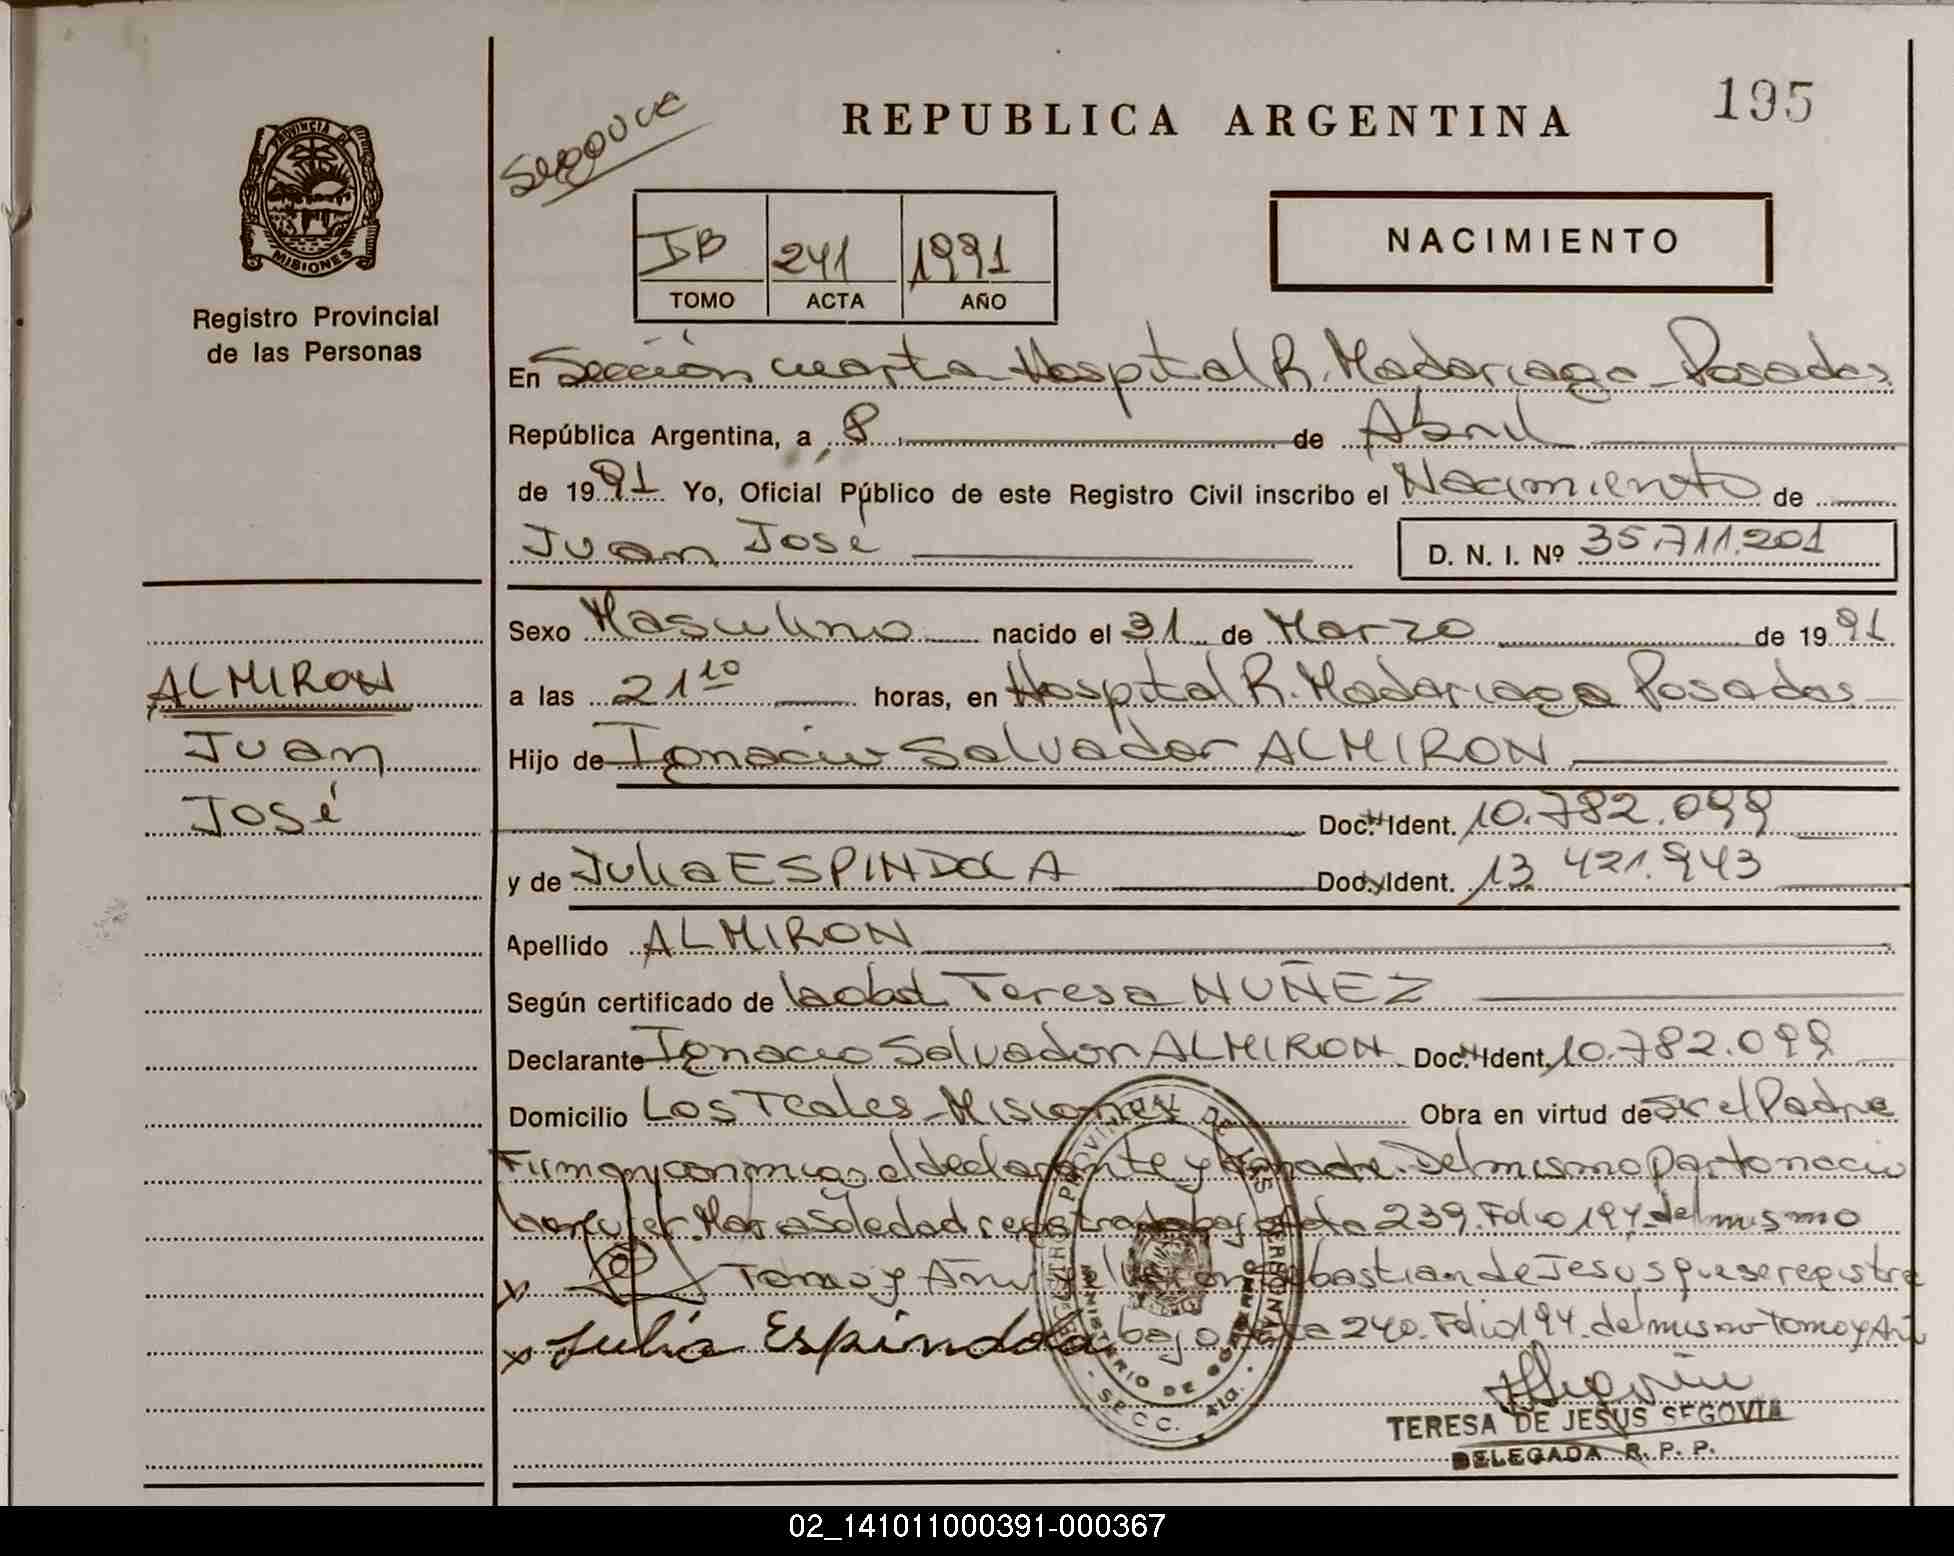 195
REPUBLICA ARGENTINA
PROVINCIA DE
MISIONES
Registro Provincial
de las Personas
NACIMIENTO
IB 241 1991
TOMO ACTA AÑO
En Sección cuarta Hospital R. Madariaga - Posadas
República Argentina, a 8 de Abril
de 1991 Yo, Oficial Público de este Registro Civil inscribo el Nacimiento de
Juan José D. N. I. Nº 35.711.201
Sexo Masculino nacido el 31 de Marzo de 1991
ALMIRON
Juan
José
a las 21 10 horas, en Hospital R. Madariaga Posadas
Hijo de Ignacio Salvador ALMIRON
Doc. Ident. 10.782.099
y de Julia ESPINDOLA Doc. Ident. 13.421.943
Apellido ALMIRON
Según certificado de Teresa NUÑEZ
Declarante Ignacio Salvador ALMIRON Doc. Ident. 10.782.099
Domicilio Los Teales - Misiones Obra en virtud de ser el Padre
Firman conmigo el declarante y la madre. Del mismo parto nacio
la mujer Maria Soledad registrada bajo Acta 239. Folio 194 del mismo
x Tomo y Año y el varon Sebastian de Jesus que se registra
x Julia Espindola bajo Acta 240. Folio 194. del mismo Tomo y Año
REGISTRO PROVINCIAL DE LAS PERSONAS
MINISTERIO DE GOBIERNO
SECC. 4ta.
TERESA DE JESUS SEGOVIA
DELEGADA R. P. P.
02_141011000391-000367